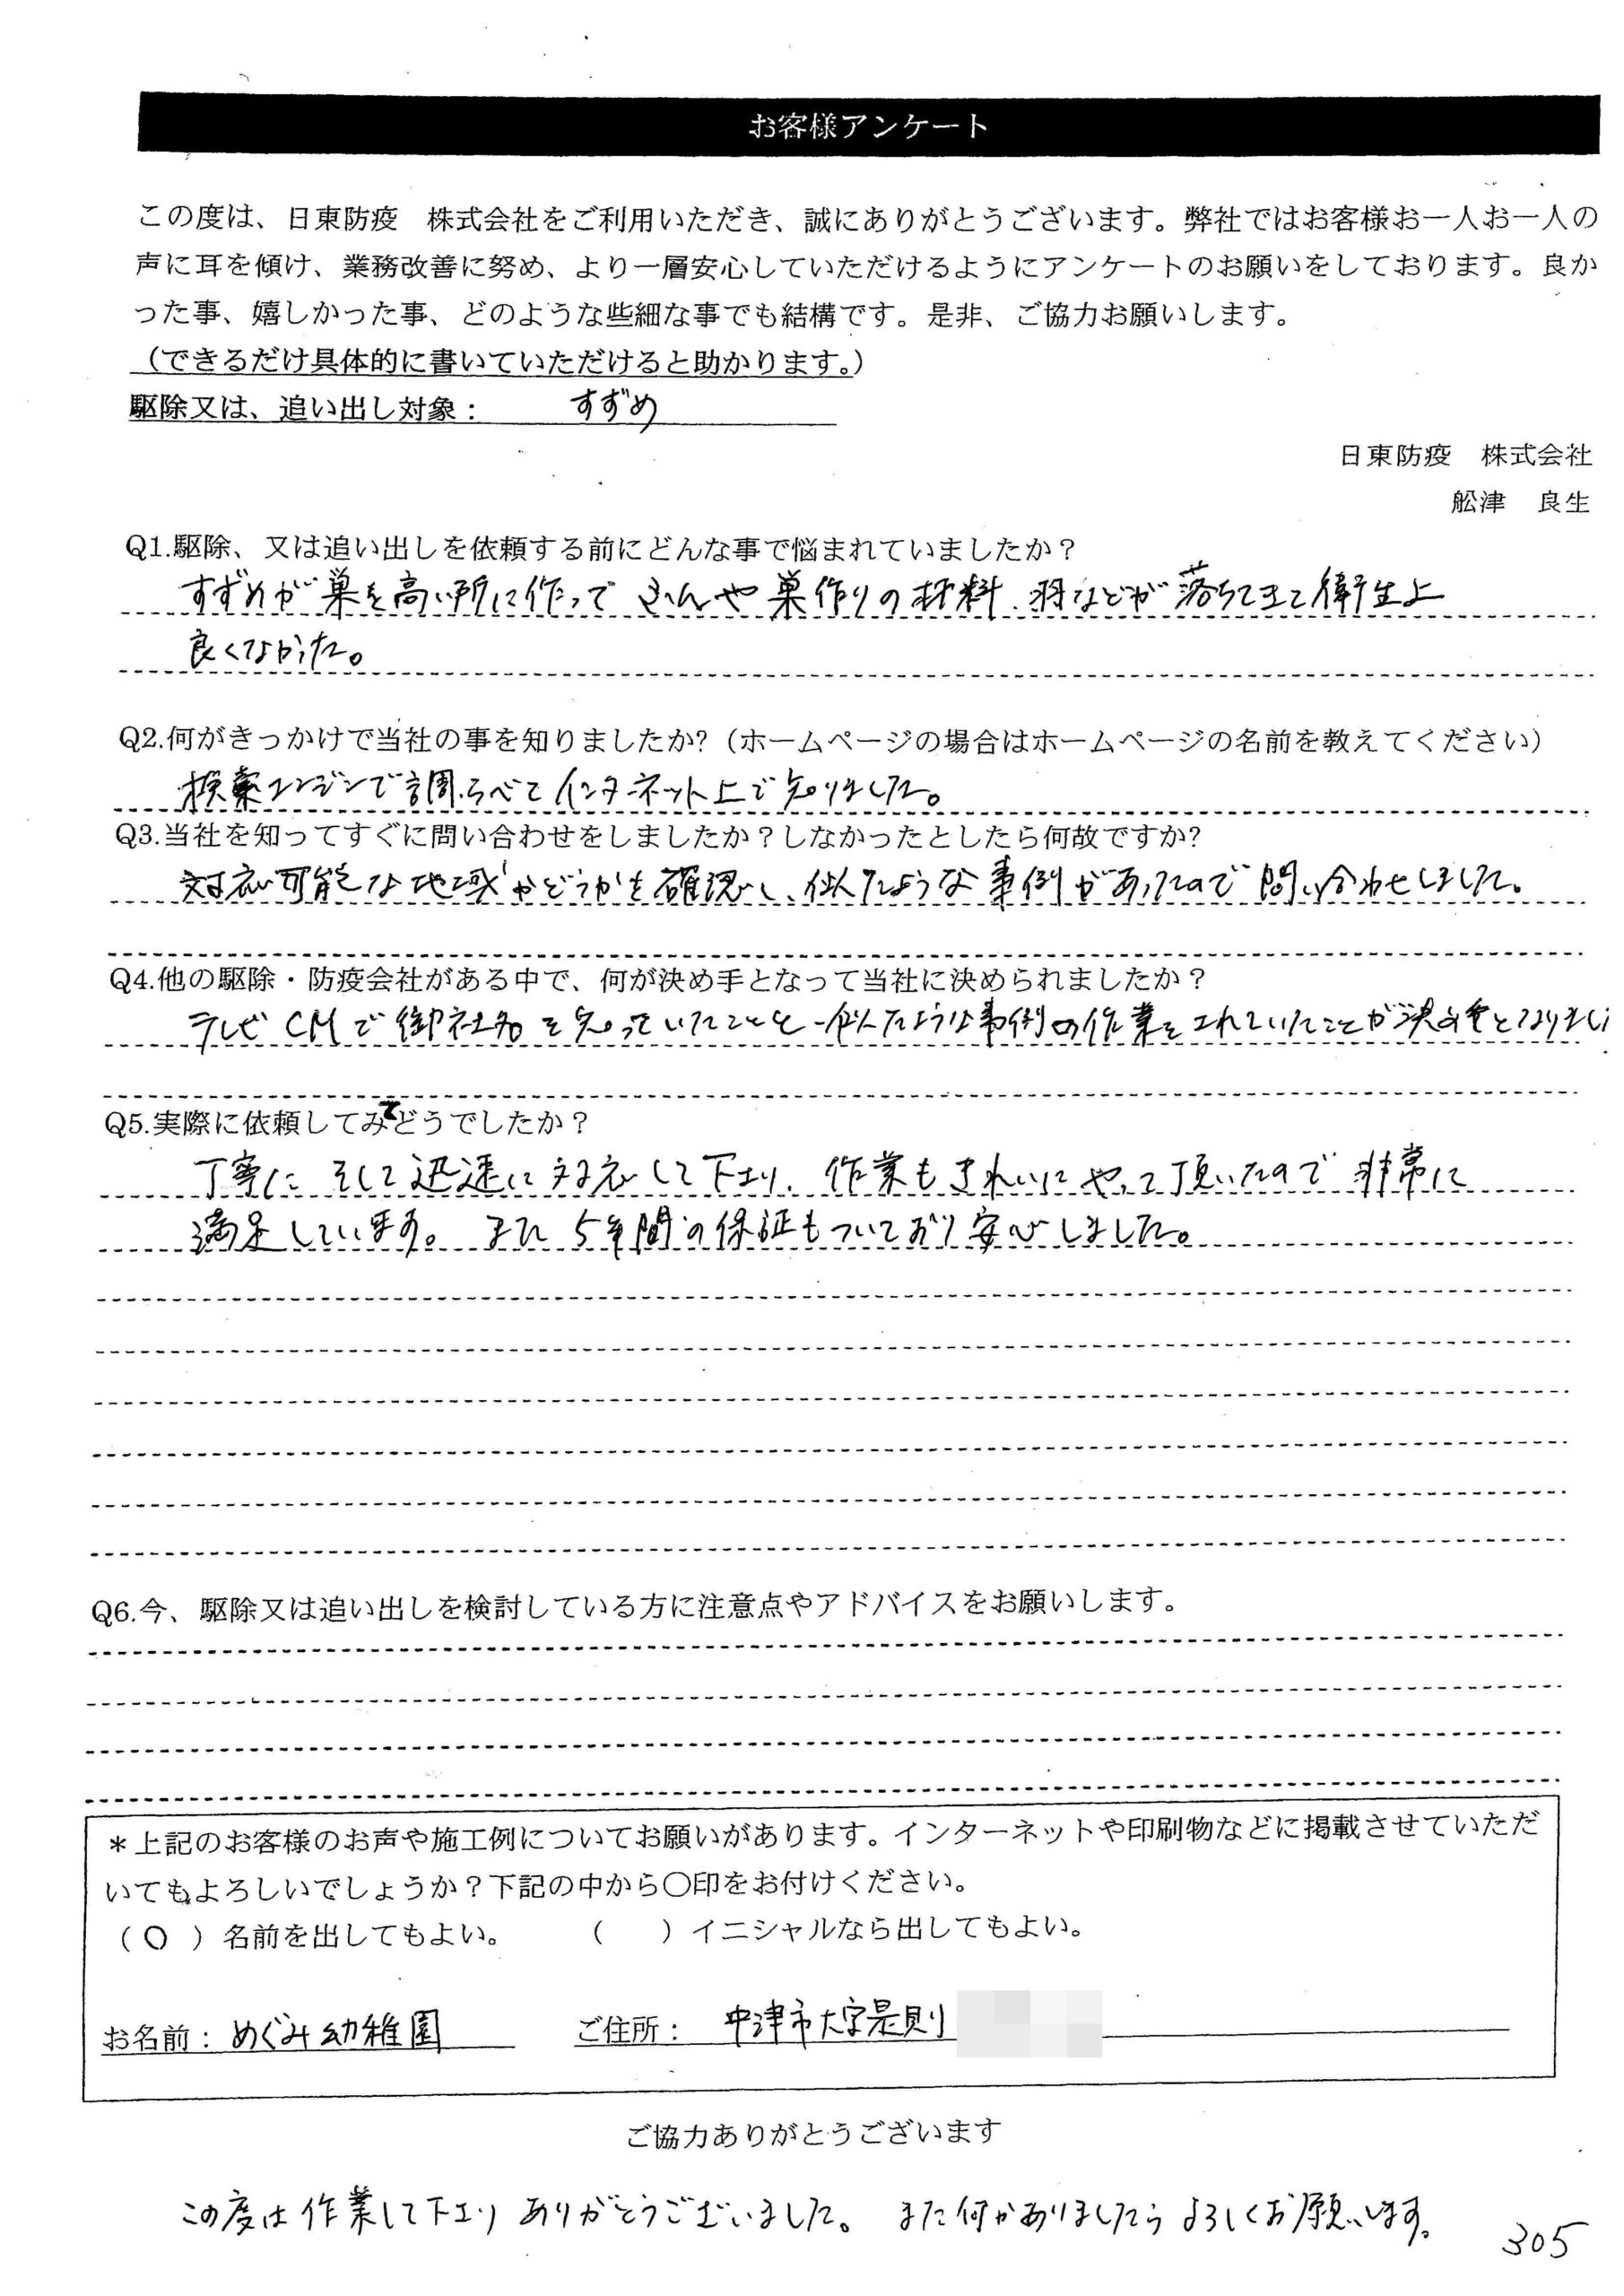 お客様アンケート
この度は、日東防疫　株式会社をご利用いただき、誠にありがとうございます。弊社ではお客様お一人お一人の
声に耳を傾け、業務改善に努め、より一層安心していただけるようにアンケートのお願いをしております。良か
った事、嬉しかった事、どのような些細な事でも結構です。是非、ご協力お願いします。
（できるだけ具体的に書いていただけると助かります。）
駆除又は、追い出し対象：　すずめ
日東防疫　株式会社
舩津　良生
Q1.駆除、又は追い出しを依頼する前にどんな事で悩まれていましたか？
すずめが巣を高い所に作って ふんや巣作りの材料、羽などが落ちてきて衛生上
良くなかった。
Q2.何がきっかけで当社の事を知りましたか?（ホームページの場合はホームページの名前を教えてください）
検索エンジンで調らべてインターネット上で知りました。
Q3.当社を知ってすぐに問い合わせをしましたか？しなかったとしたら何故ですか?
対応可能な地域かどうかを確認し、似たような事例があったので問い合わせしました。
Q4.他の駆除・防疫会社がある中で、何が決め手となって当社に決められましたか？
テレビCMで御社名を知っていたことと、似たような事例の作業をされていたことが決め手となりまし
Q5.実際に依頼してみてどうでしたか？
丁寧に そして迅速に対応して下さり、作業もきれいにやって頂いたので非常に
満足しています。また5年間の保証もついており安心しました。
Q6.今、駆除又は追い出しを検討している方に注意点やアドバイスをお願いします。
＊上記のお客様のお声や施工例についてお願いがあります。インターネットや印刷物などに掲載させていただ
いてもよろしいでしょうか？下記の中から〇印をお付けください。
（ 〇 ）名前を出してもよい。　（　　）イニシャルなら出してもよい。
お名前：めぐみ幼稚園　ご住所：中津市大字是則
ご協力ありがとうございます
この度は作業して下さり ありがとうございました。 また何かありましたら よろしくお願いします。
305